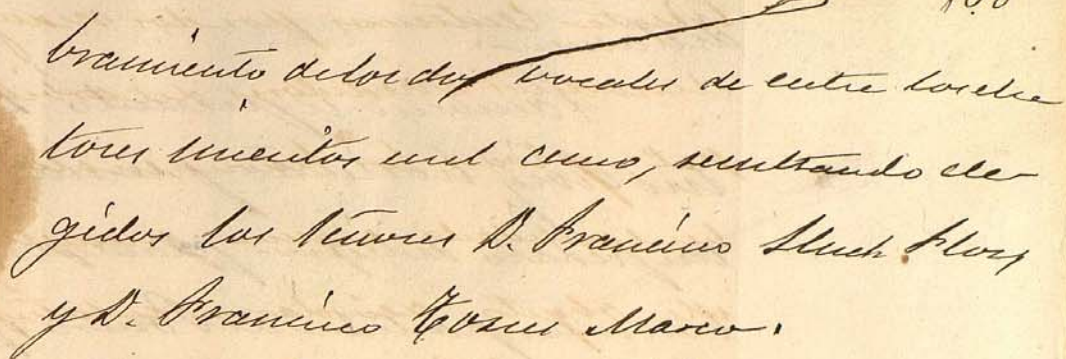 bramiento de los dos vocales de entre los elec
tores inscritos en el censo, resultando ele-
gidos los señores D. Francisco Lluch Flors
y D. Francisco Marco.